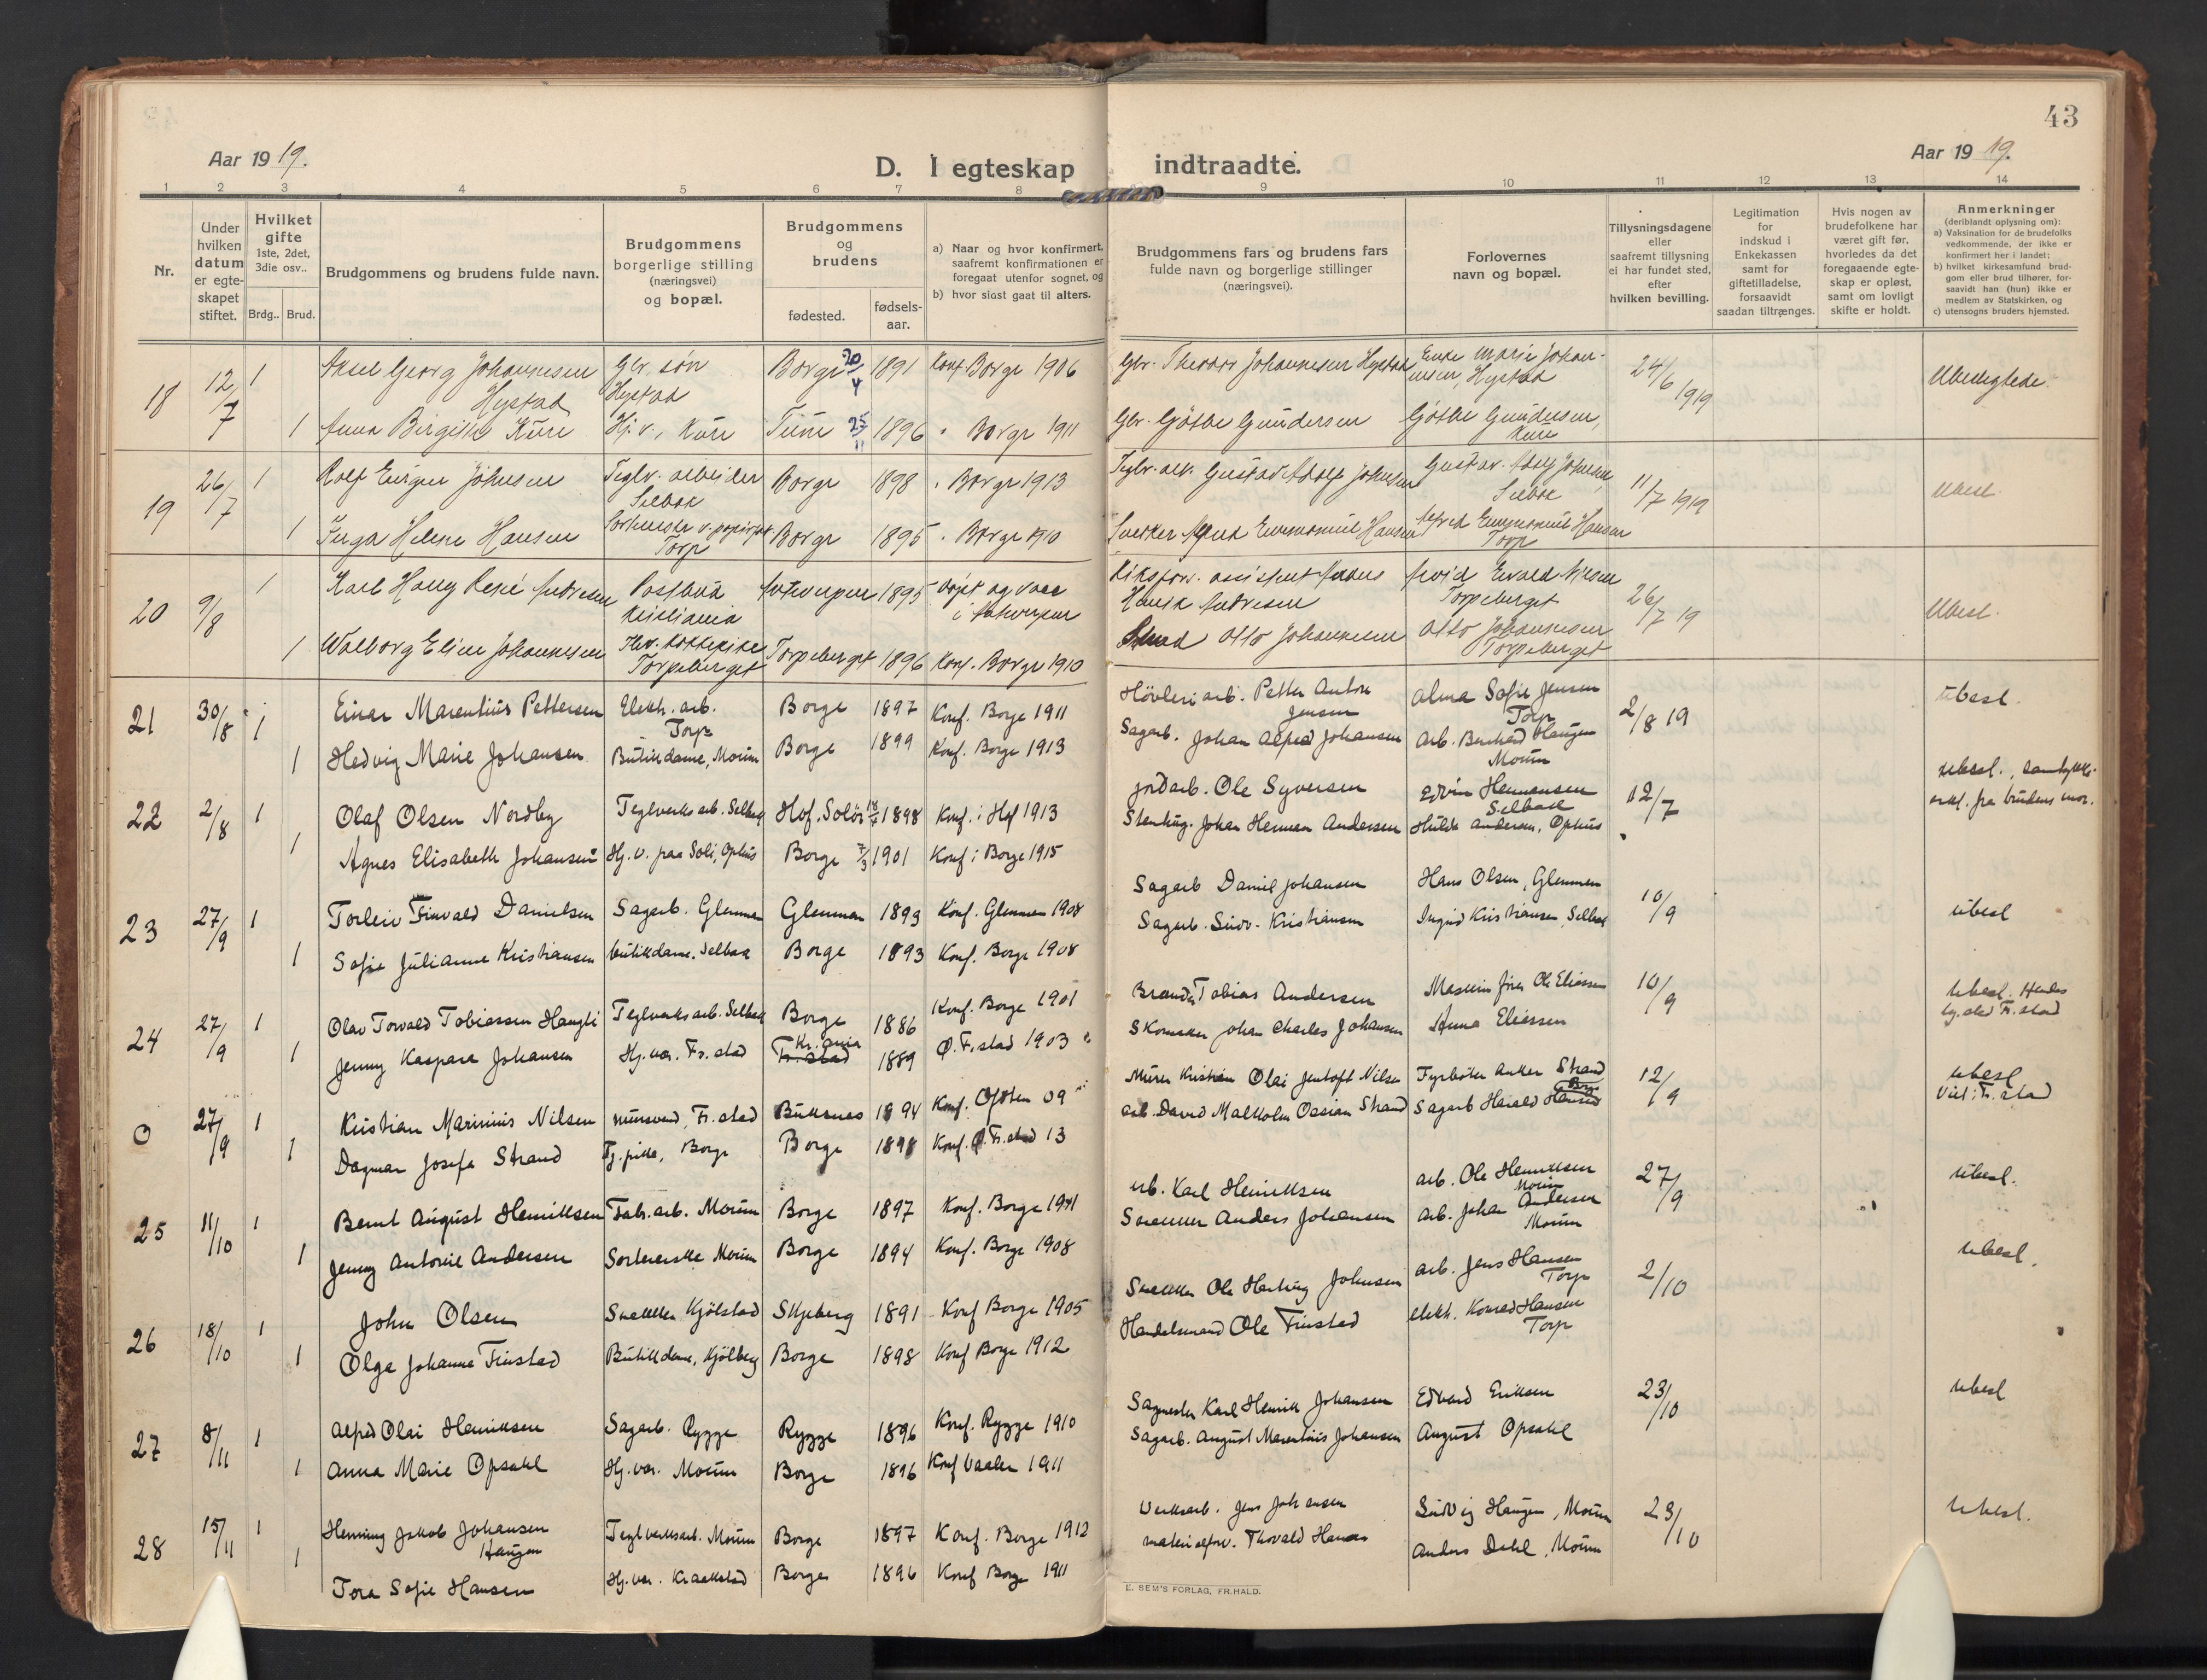 43
Aar 19 19.
D. I egteskap indtraadte.
Aar 19 19.
1 2 3 4 5 6 7 8 9 10 11 12 13 14
Nr.
Under hvilken datum er egte-skapet stiftet.
Hvilket gifte 1ste, 2det, 3die osv..
Brdg.. Brud.
Brudgommens og brudens fulde navn.
Brudgommens borgerlige stilling (næringsvei) og bopæl.
Brudgommens og brudens
fødested.
fødsels-aar.
a) Naar og hvor konfirmert, saafremt konfirmationen er foregaat utenfor sognet, og
b) hvor sidst gaat til alters.
Brudgommens fars og brudens fars fulde navn og borgerlige stillinger (næringsvei).
Forlovernes navn og bopæl.
Tillysningsdagene eller saafremt tillysning ei har fundet sted, efter hvilken bevilling.
Legitimation for indskud i Enkekassen samt for giftetilladelse, forsaavidt saadan tiltrænges.
Hvis nogen av brudefolkene har været gift før, hvorledes da det foregaaende egte-skap er opløst, samt om lovligt skifte er holdt.
Anmerkninger (deriblandt oplysning om):
a) Vaksination for de brudefolks vedkommende, der ikke er konfirmert her i landet;
b) hvilket kirkesamfund brud-gom eller brud tilhører, for-saavidt han (hun) ikke er medlem av Statskirken, og
c) utensogns bruders hjemsted.
18 12/7 1 Aksel Georg Johannesen Hystad Gbr. søn Hystad Borge 20/4 1891 Konf Borge 1906 Gbr. Theodor Johannesen Hystad Enke Marie Johan-nesen, Hystad 24/6 1919 Ubeslegtede
1 Anna Birgitte Kure Hj. v., Kure Tune 25/11 1896 " Borge 1911 Gbr. Gøthe Gundersen Gøthe Gundersen, Kure
19 26/7 1 Rolf Eugen Johnsen Teglv. arbeider Selbak Borge 1898 " Borge 1913 Teglv. arb. Gustav Adolf Johnsen Gustav Adolf Johnsen, Selbak 11/7 1919 Ubesl.
1 Inga Helene Hansen Torp Borge 1895 " Borge 1910 Snekker Alfred Emmanuel Hansen Alfred Emmanuel Hansen Torp
20 9/8 1 Karl Harry René Andresen Postbud Kristiania Antwerpen 1895 Døpt og vacc i Antwerpen assistent Anders Henrik Andresen Arvid Evald Nilsen Torpeberget 26/7 19 Ubesl.
1 Walborg Eline Johannesen Torpeberget Torpeberget 1896 Konf. Borge 1910 Smed Otto Johannesen Otto Johannesen Torpeberget
21 30/8 1 Einar Marentius Pettersen Elekt. arb. Torp Borge 1897 Konf. Borge 1911 Høvleriarb. Petter Anton Jensen Alma Sofie Jensen Torp 2/8 19 Ubesl.
1 Hedvig Marie Johansen Butikdame, Moum Borge 1899 Konf. Borge 1913 Sagarb. Johan Alfred Johansen Arb. Bernhard Haugen Moum
22 2/8 1 Olaf Olsen Nordby Teglverks arb. Selbak Hof, Solør 1898 Konf. i Hof 1913 Jordarb. Ole Syversen Edvin Hermansen Selbak 12/7 ubesl., samtykke-erkl. fra brudens mor.
1 Agnes Elisabeth Johansen Hj. v. paa Soli, Ophus Borge 7/3 1901 Konf i Borge 1915 Stenhug. Johan Herman Andersen Hulda Andersen, Ophus
23 27/9 1 Torleiv Finvald Danielsen Sagarb. Glemmen Glemmen 1893 Konf. Glemmen 1908 Sagarb Daniel Johansen Hans Olsen, Glemmen 10/9 ubesl
1 Sofie Julianne Kristiansen butikdame, Selbak Borge 1893 Konf. Borge 1908 Sagarb. Kristiansen Ingrid Kristiansen, Selbak
24 27/9 1 Olav Torvald Tobiassen Haugli Teglverks arb. Selbak Borge 1886 Konf. Borge 1901 Tobias Andersen Maskinfører Ole Eliassen 10/9 ubesl.
1 Jenny Kaspara Johansen Hj. vær. Fr. stad Kr. ania Fr. stad 1889 Ø. Fr. stad 1903 Skomaker Johan Charles Johansen Anna Eliassen
0 27/9 1 Kristian Marinius Nilsen mursvend, Fr. stad Buksnes 1894 Konf. 09 Murer Kristian Olai Jentoft Nilsen Fyrbøter Anker Strand Borge 12/9 ubesl Viet i Fr. stad
1 Dagmar Josefa Strand Tj. pike, Borge Borge 1898 Konf. Ø. Fr. stad 13 Arb. David Malkolm Ossian Strand Sagarb Harald Hansen
25 11/10 1 Bernt August Henriksen Fabr. arb. Moum Borge 1897 Konf. Borge 1911 Arb. Karl Henriksen Arb. Ole Henriksen Moum 27/9 Ubesl.
1 Jenny Antonie Andersen Sorterske Moum Borge 1894 Konf. Borge 1908 Snekker Anders Johansen Arb. Johan Andersen Moum
26 18/10 1 John Olsen Snekker Kjølstad Skjeberg 1891 Konf Borge 1905 Snekker Ole Johnsen Arb. Jens Hansen Torp 2/10 Ubesl.
1 Olga Johanne Finstad Butikdame, Kjølberg Borge 1898 Konf Borge 1912 Handelsmand Ole Finstad Elekt. Konrad Hansen Torp
27 8/11 1 Alfred Olai Henriksen Sagarb. Rygge Rygge 1896 Konf. Rygge 1910 Sagmester Karl Henrik Johansen Edvard Eriksen 23/10 Ubesl
1 Anna Marie Opsahl Hj. vær. Moum Borge 1896 Konf Vaaler 1911 Sagarb. August Marentius Johansen August Opsahl
28 15/11 1 Henning Jakob Johansen Haugen Teglverksarb. Moum Borge 1897 Konf. Borge 1912 Verksarb. Jens Johansen Ludvig Haugen, Moum 23/10 Ubesl.
1 Tora Sofie Hansen Hj. vær. Kraakstad Borge 1896 Konf Borge 1911 Materialforv. Thorvald Hansen Anders Dahl, Moum
E. SEM'S FORLAG, FR.HALD.